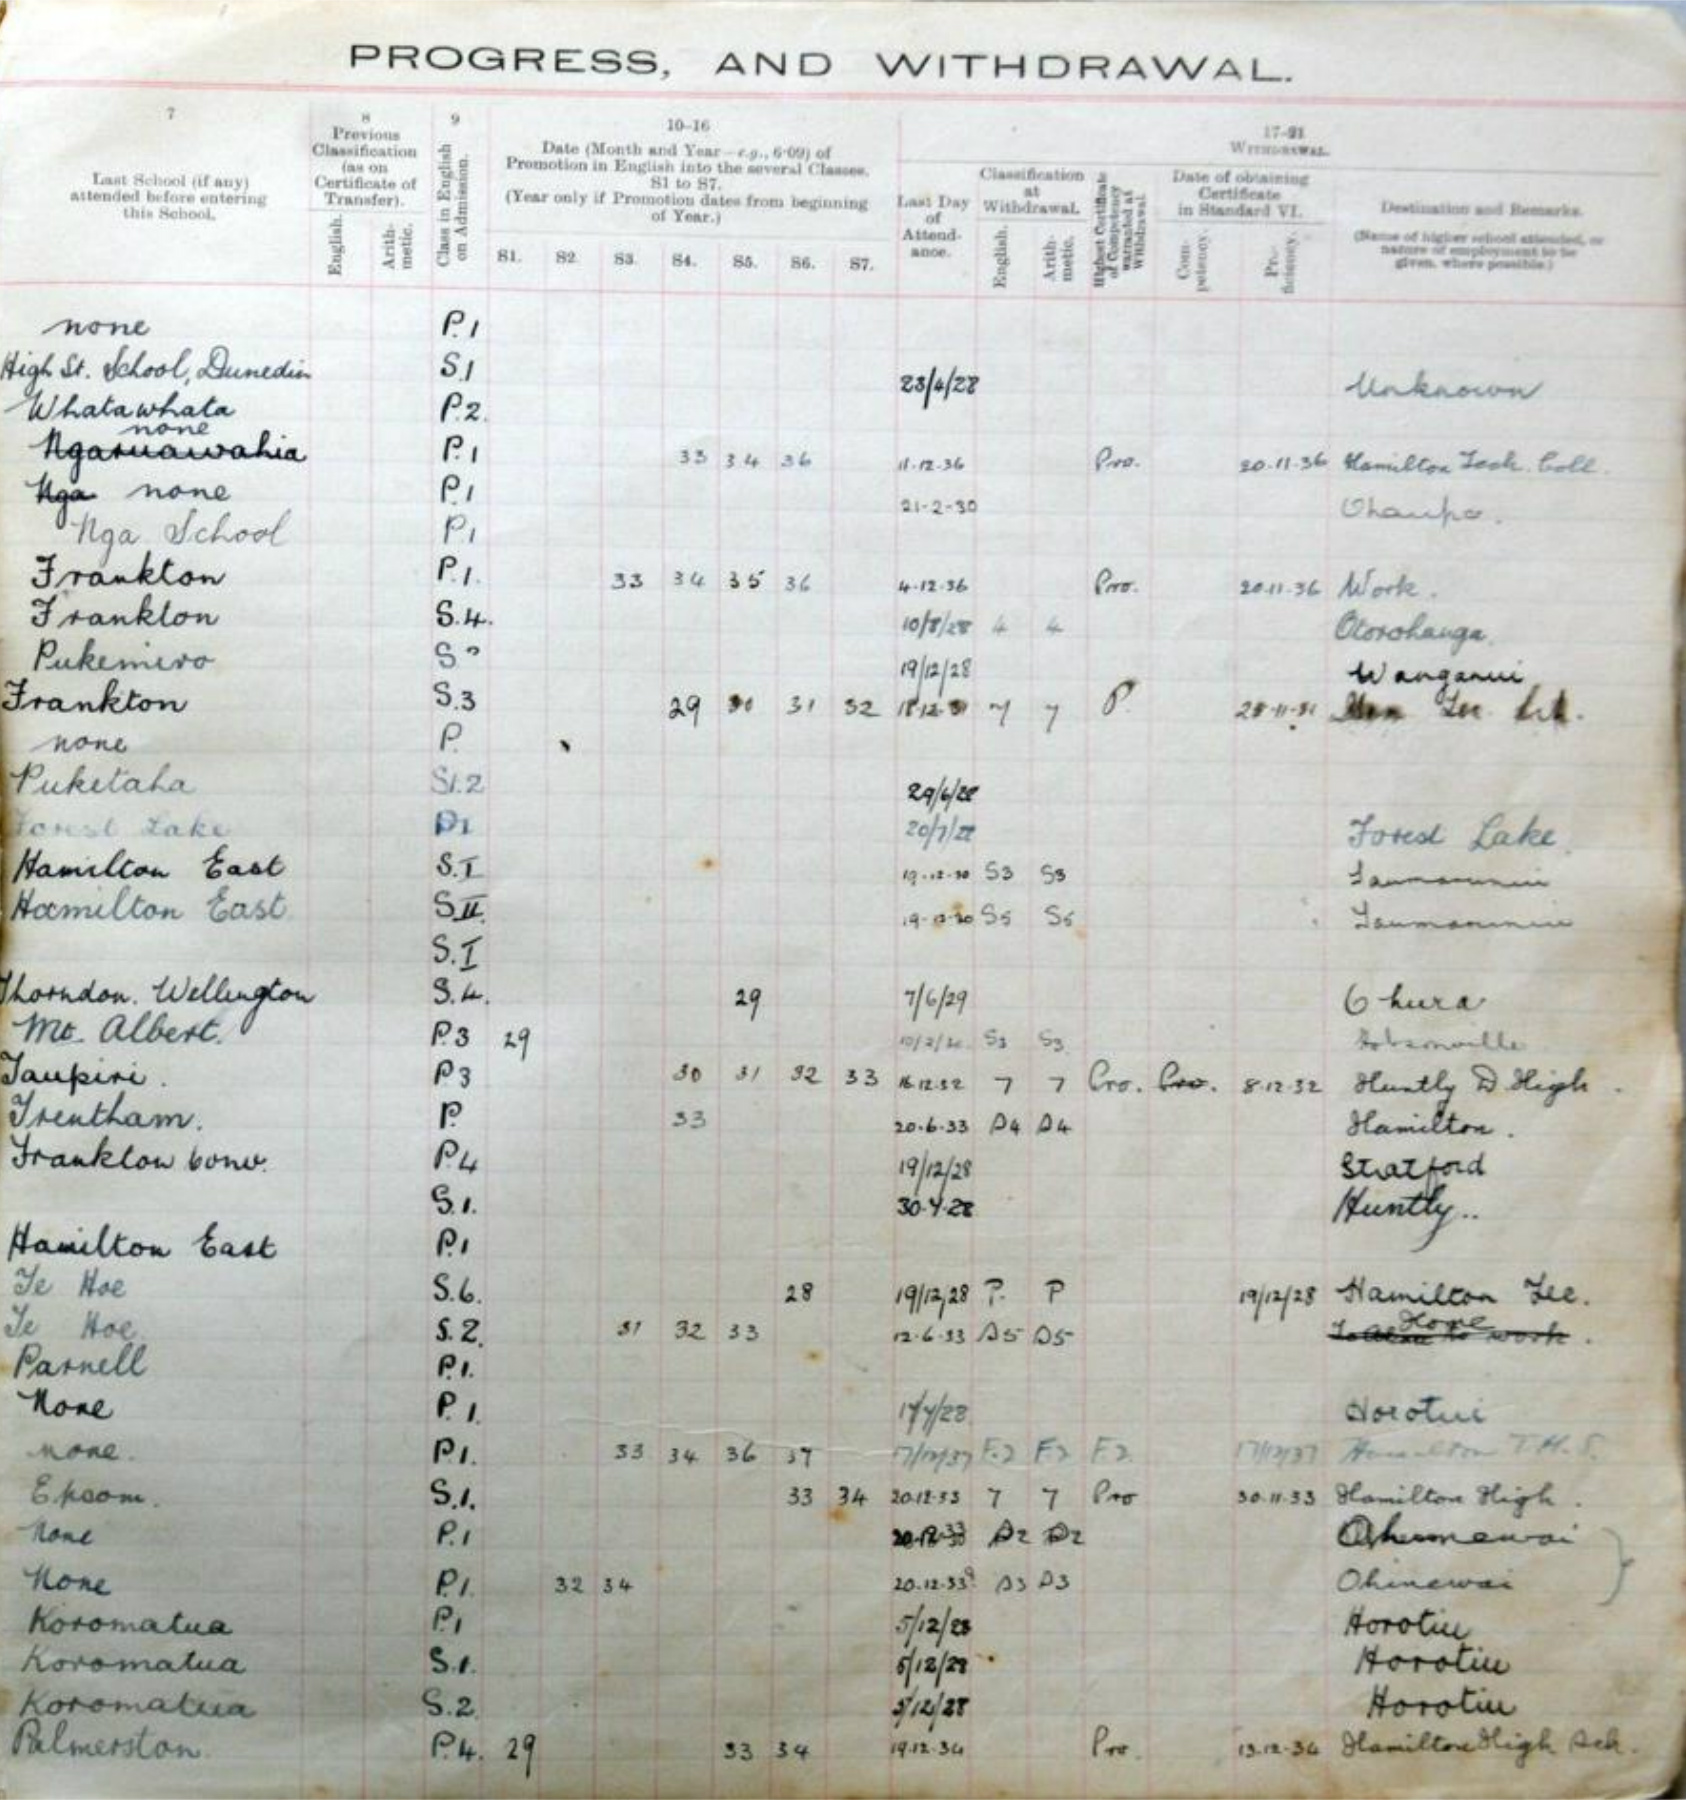 PROGRESS, AND WITHDRAWAL.
7
Last School (if any) attended before entering this School.
8
Previous Classification (as on Certificate of Transfer).
English.
Arithmetic.
9
Class in English on Admission.
10-16
Date (Month and Year—e.g., 6·09) of Promotion in English into the several Classes, S1 to S7.
(Year only if Promotion dates from beginning of Year.)
S1. S2 S3. S4. S5. S6. S7.
17-21
WITHDRAWAL.
Last Day of Attendance.
Classification at Withdrawal.
English.
Arithmetic.
Highest Certificate of Competency warranted at Withdrawal.
Date of obtaining Certificate in Standard VI.
Competency.
Proficiency.
Destination and Remarks.
(Name of higher school attended, or nature of employment to be given, where possible.)
none P.1
High St. School, Dunedin S.1 23/4/28 Unknown
Whatawhata P.2.
none
Ngaruawahia P.1 33 34 36 11.12.36 Pro. 20.11.36 Hamilton Tech. Coll.
Nga none P.1 21-2-30 Ohaupo.
Nga School P1
Frankton P.1. 33 34 35 36 4.12.36 Pro. 20.11.36 Work.
Frankton S.4. 10/8/28 4 4 Otorohanga.
Pukemiro S 19/12/28 Wanganui
Frankton S.3 29 30 31 32 18.12.31 7 7 P.
none P.
Puketaha S1.2 29/6/28
Forest Lake P1 20/7/28 Forest Lake.
Hamilton East S.I 19.12.30 S3 S3 Taumarunui
Hamilton East S.II. 19.12.30 S5 S5 Taumarunui
S.I
Thorndon. Wellington S.4. 29 7/6/29 Ohura
Mt. Albert. P.3 29 S3 S3. Hobsonville
Taupiri. P3 30 31 32 33 16.12.32 7 7 Pro. Pro. 8.12.32 Huntly D High.
Trentham. P. 33 20.6.33 S4 S4 Hamilton.
Frankton Conv. P.4 19/12/28 Stratford
S.1. 30.4.28 Huntly..
Hamilton East P.1
Te Hoe S.6. 28 19/12/28 P. P 19/12/28 Hamilton Tec.
Home
Te Hoe S.2. 31 32 33 12.6.33 S5 S5 to work.
Parnell P.1.
None P.1. 17/4/28 Horotiu
none. P1. 33 34 36 37 17/12/37 F.2 F2 F2. 17/12/37 Hamilton T.H.S.
Epsom. S.1. 33 34 20.12.33 7 7 Pro 30.11.33 Hamilton High.
None P.1 S2 S2 Ohinewai
None P.1. 32 34 20.12.33 S3 S3 Ohinewai
Koromatua P.1 5/12/28 Horotiu
Koromatua S.1. 5/12/28 Horotiu
Koromatua S.2. 5/12/28 Horotiu
Palmerston P.4. 29 33 34 19.12.34 Pro. 13.12.34 Hamilton High Sch.